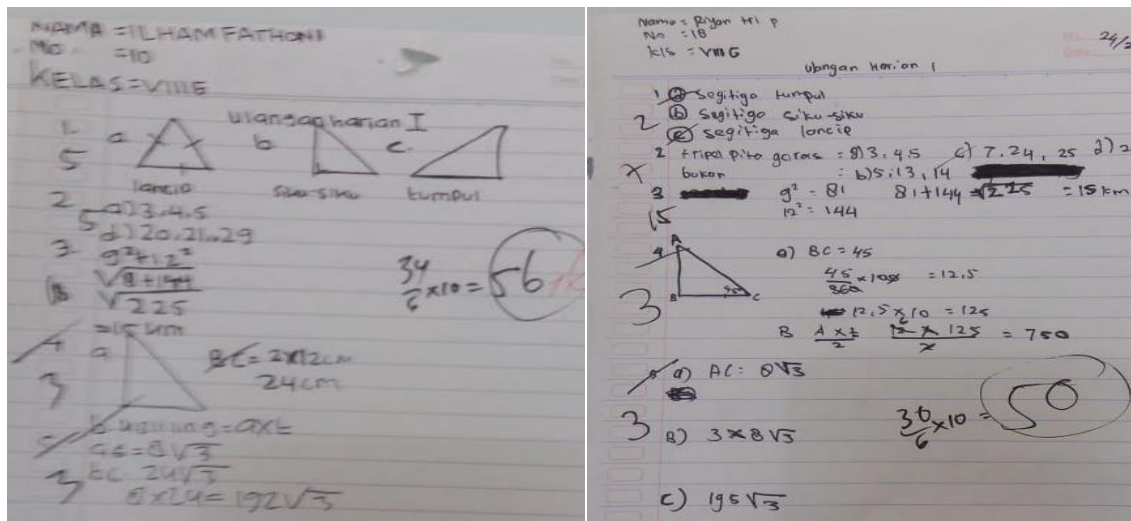 NAMA = ILHAM FATHONI
NO = 10
KELAS = VIII E
Ulangan harian I
1. a b c.
5
lancip siku-siku tumpul
2 a) 3.4.5
5 d) 20.21.29
3. 9²+12²
√8+144
√225
= 15 km
34/6 x 10 = 56
4 a BC = 2x12cm
3 24cm
= axt
5 8√3
BC 24√3
3 8x24 = 192√3
Nama = Riyan tri p
No = 18
Kls = VIII G
24/2
Ulangan Harian 1
1 a segitiga tumpul
2 b segitiga siku-siku
c segitiga lancip
2 tripel pita goras = a) 3.4.5 c) 7.24, 25 d) 2
x bukan : b) 5.13, 14
3 9² = 81 81+144 = √225 = 15 km
15 12² = 144
4 A B C 45
a) BC = 45
45/360 = 12.5
3
12.5 x 10 = 125
B A x t/2 12 x 125 = 750
5 a) AC = 8√3
3 B) 3 x 8√3
30/6 x 10 = 50
C) 195√3